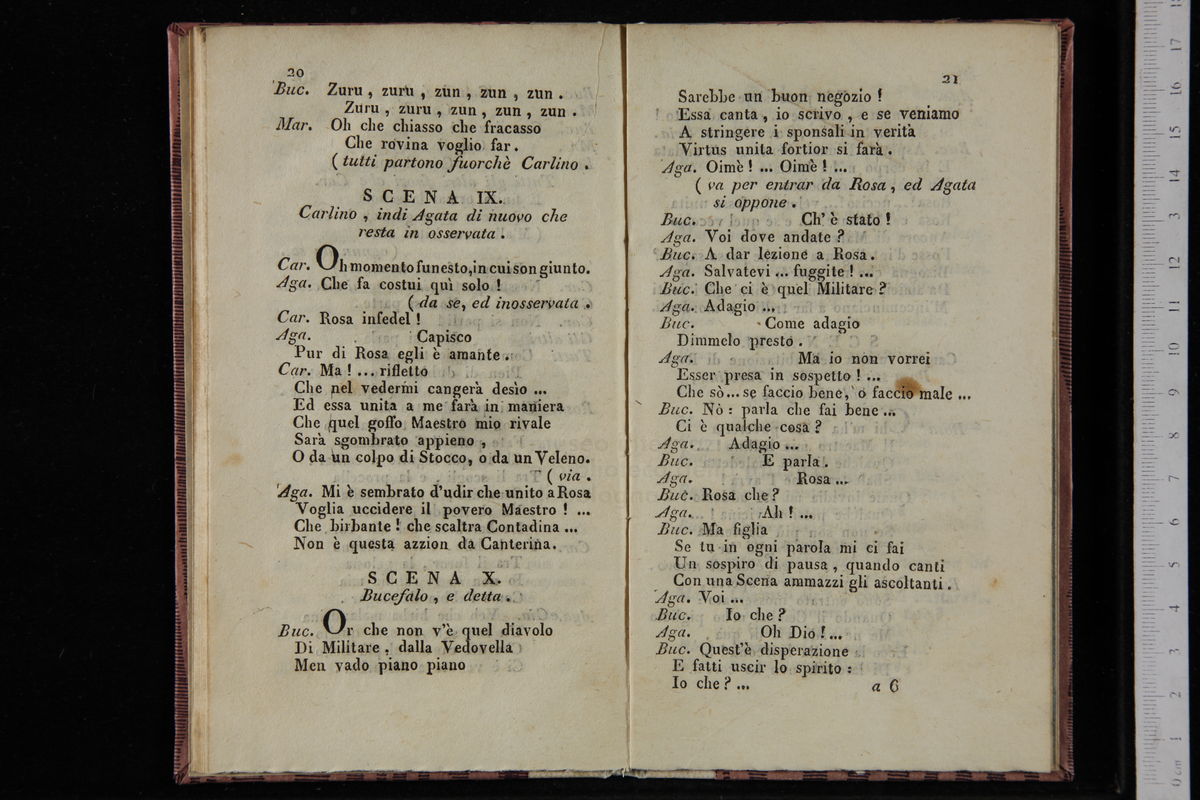 20
Buc. Zuru , zuru , zun , zun , zun .
Zuru , zuru , zun , zun , zun .
Mar. Oh che chiasso che fracasso
Che rovina voglio far .
( tutti partono fuorchè Carlino .
SCENA IX.
Carlino , indi Agata di nuovo che
resta in osservata .
Car. Oh momento funesto, in cui son giunto.
Aga. Che fa costui quì solo !
( da se, ed inosservata .
Car. Rosa infedel !
Aga. Capisco
Pur di Rosa egli è amante .
Car. Ma ! ... rifletto
Che nel vedermi cangerà desìo ...
Ed essa unita a me farà in maniera
Che quel goffo Maestro mio rivale
Sarà sgombrato appieno ,
O da un colpo di Stocco, o da un Veleno.
( via .
Aga. Mi è sembrato d'udir che unito a Rosa
Voglia uccidere il povero Maestro ! ...
Che birbante ! che scaltra Contadina ...
Non è questa azzion da Canterina.
SCENA X.
Bucefalo , e detta .
Buc. Or che non v'è quel diavolo
Di Militare , dalla Vedovella
Men vado piano piano
21
Sarebbe un buon negozio !
Essa canta , io scrivo , e se veniamo
A stringere i sponsali in verità
Virtus unita fortior si farà .
Aga. Oimè ! ... Oimè ! ...
( va per entrar da Rosa , ed Agata
si oppone .
Buc. Ch' è stato !
Aga. Voi dove andate ?
Buc. A dar lezione a Rosa .
Aga. Salvatevi ... fuggite ! ...
Buc. Che ci è quel Militare ?
Aga. Adagio ...
Buc. Come adagio
Dimmelo presto .
Aga. Ma io non vorrei
Esser presa in sospetto ! ...
Che sò ... se faccio bene, o faccio male ...
Buc. Nò : parla che fai bene ...
Ci è qualche cosa ?
Aga. Adagio ...
Buc. E parla .
Aga. Rosa ...
Buc. Rosa che ?
Aga. Ah ! ...
Buc. Ma figlia
Se tu in ogni parola mi ci fai
Un sospiro di pausa , quando canti
Con una Scena ammazzi gli ascoltanti .
Aga. Voi ...
Buc. Io che ?
Aga. Oh Dio ! ...
Buc. Quest'è disperazione
E fatti uscir lo spirito :
Io che ? ...
a 6